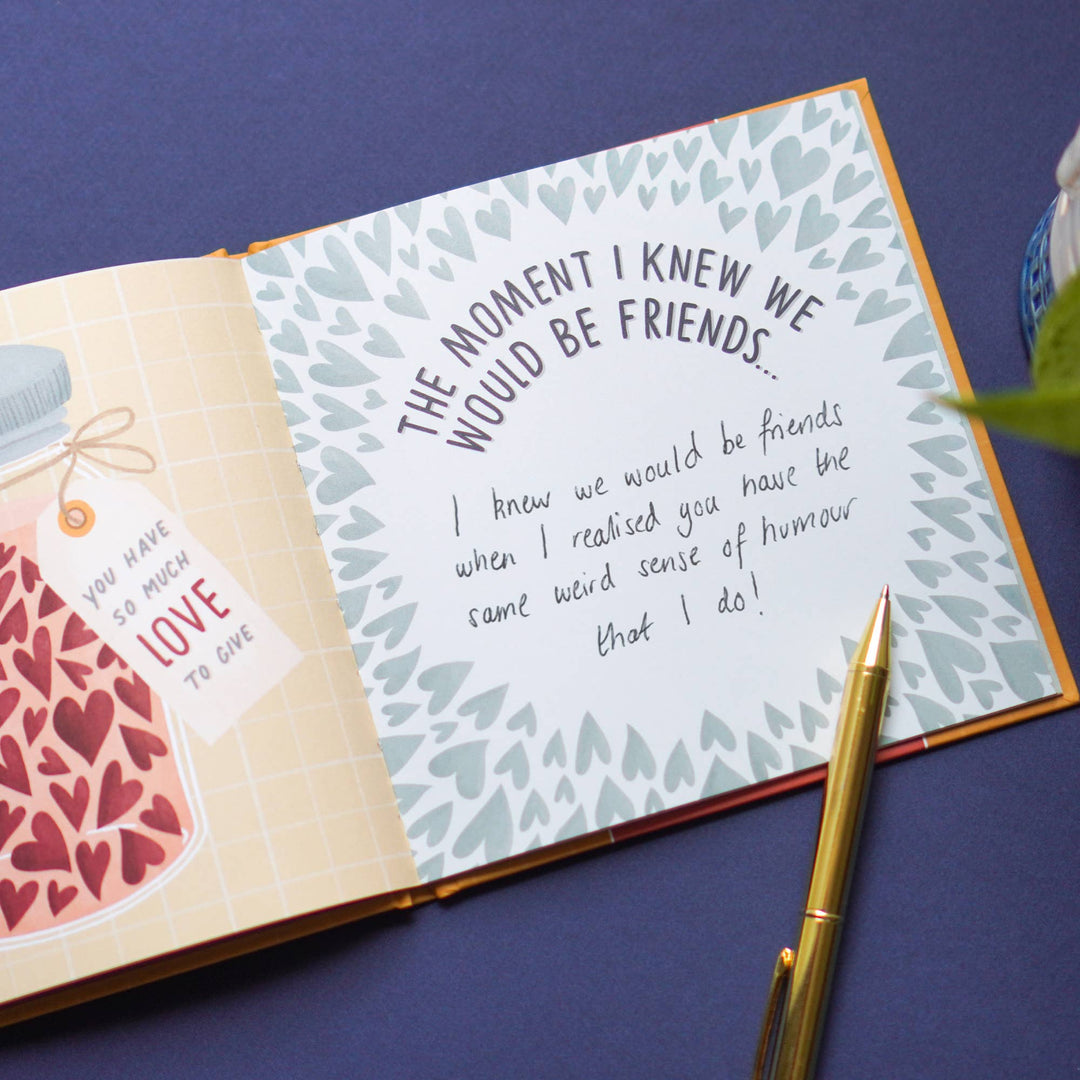 YOU HAVE
SO MUCH
LOVE
TO GIVE
THE MOMENT I KNEW WE
WOULD BE FRIENDS...
I knew we would be friends
when I realised you have the
same weird sense of humour
that I do!